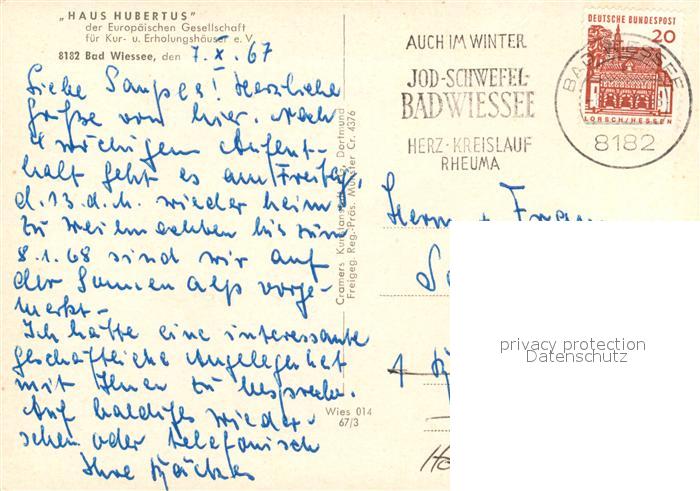 „HAUS HUBERTUS"
der Europäischen Gesellschaft
für Kur- u. Erholungshäuser e. V.
8182 Bad Wiessee, den 7. X. 67
Liebe Herzliche
Grüße von hier. Nach
4 wöchigem Aufent-
halt geht es am Freitag,
d. 13. d. h. wieder heim.
Zu Weihnachten bis zum
8.1.68 sind wir auf
der Sonnenalp vorge-
merkt-
Ich hätte eine interessante
geschäftliche Angelegenheit
mit Ihnen zu besprechen.
Auf baldiges Wieder-
sehen oder telefonisch
Ihre
Cramers Kunstanstalt Dortmund
Freigeg. Reg.-Präs. Münster Cr. 4376
Wies 014
67/3
AUCH IM WINTER
JOD-SCHWEFEL-
BAD WIESSEE
HERZ·KREISLAUF
RHEUMA
DEUTSCHE BUNDESPOST
20
LORSCH/HESSEN
BAD WIESSEE
8182
Herrn + Frau
privacy protection
Datenschutz